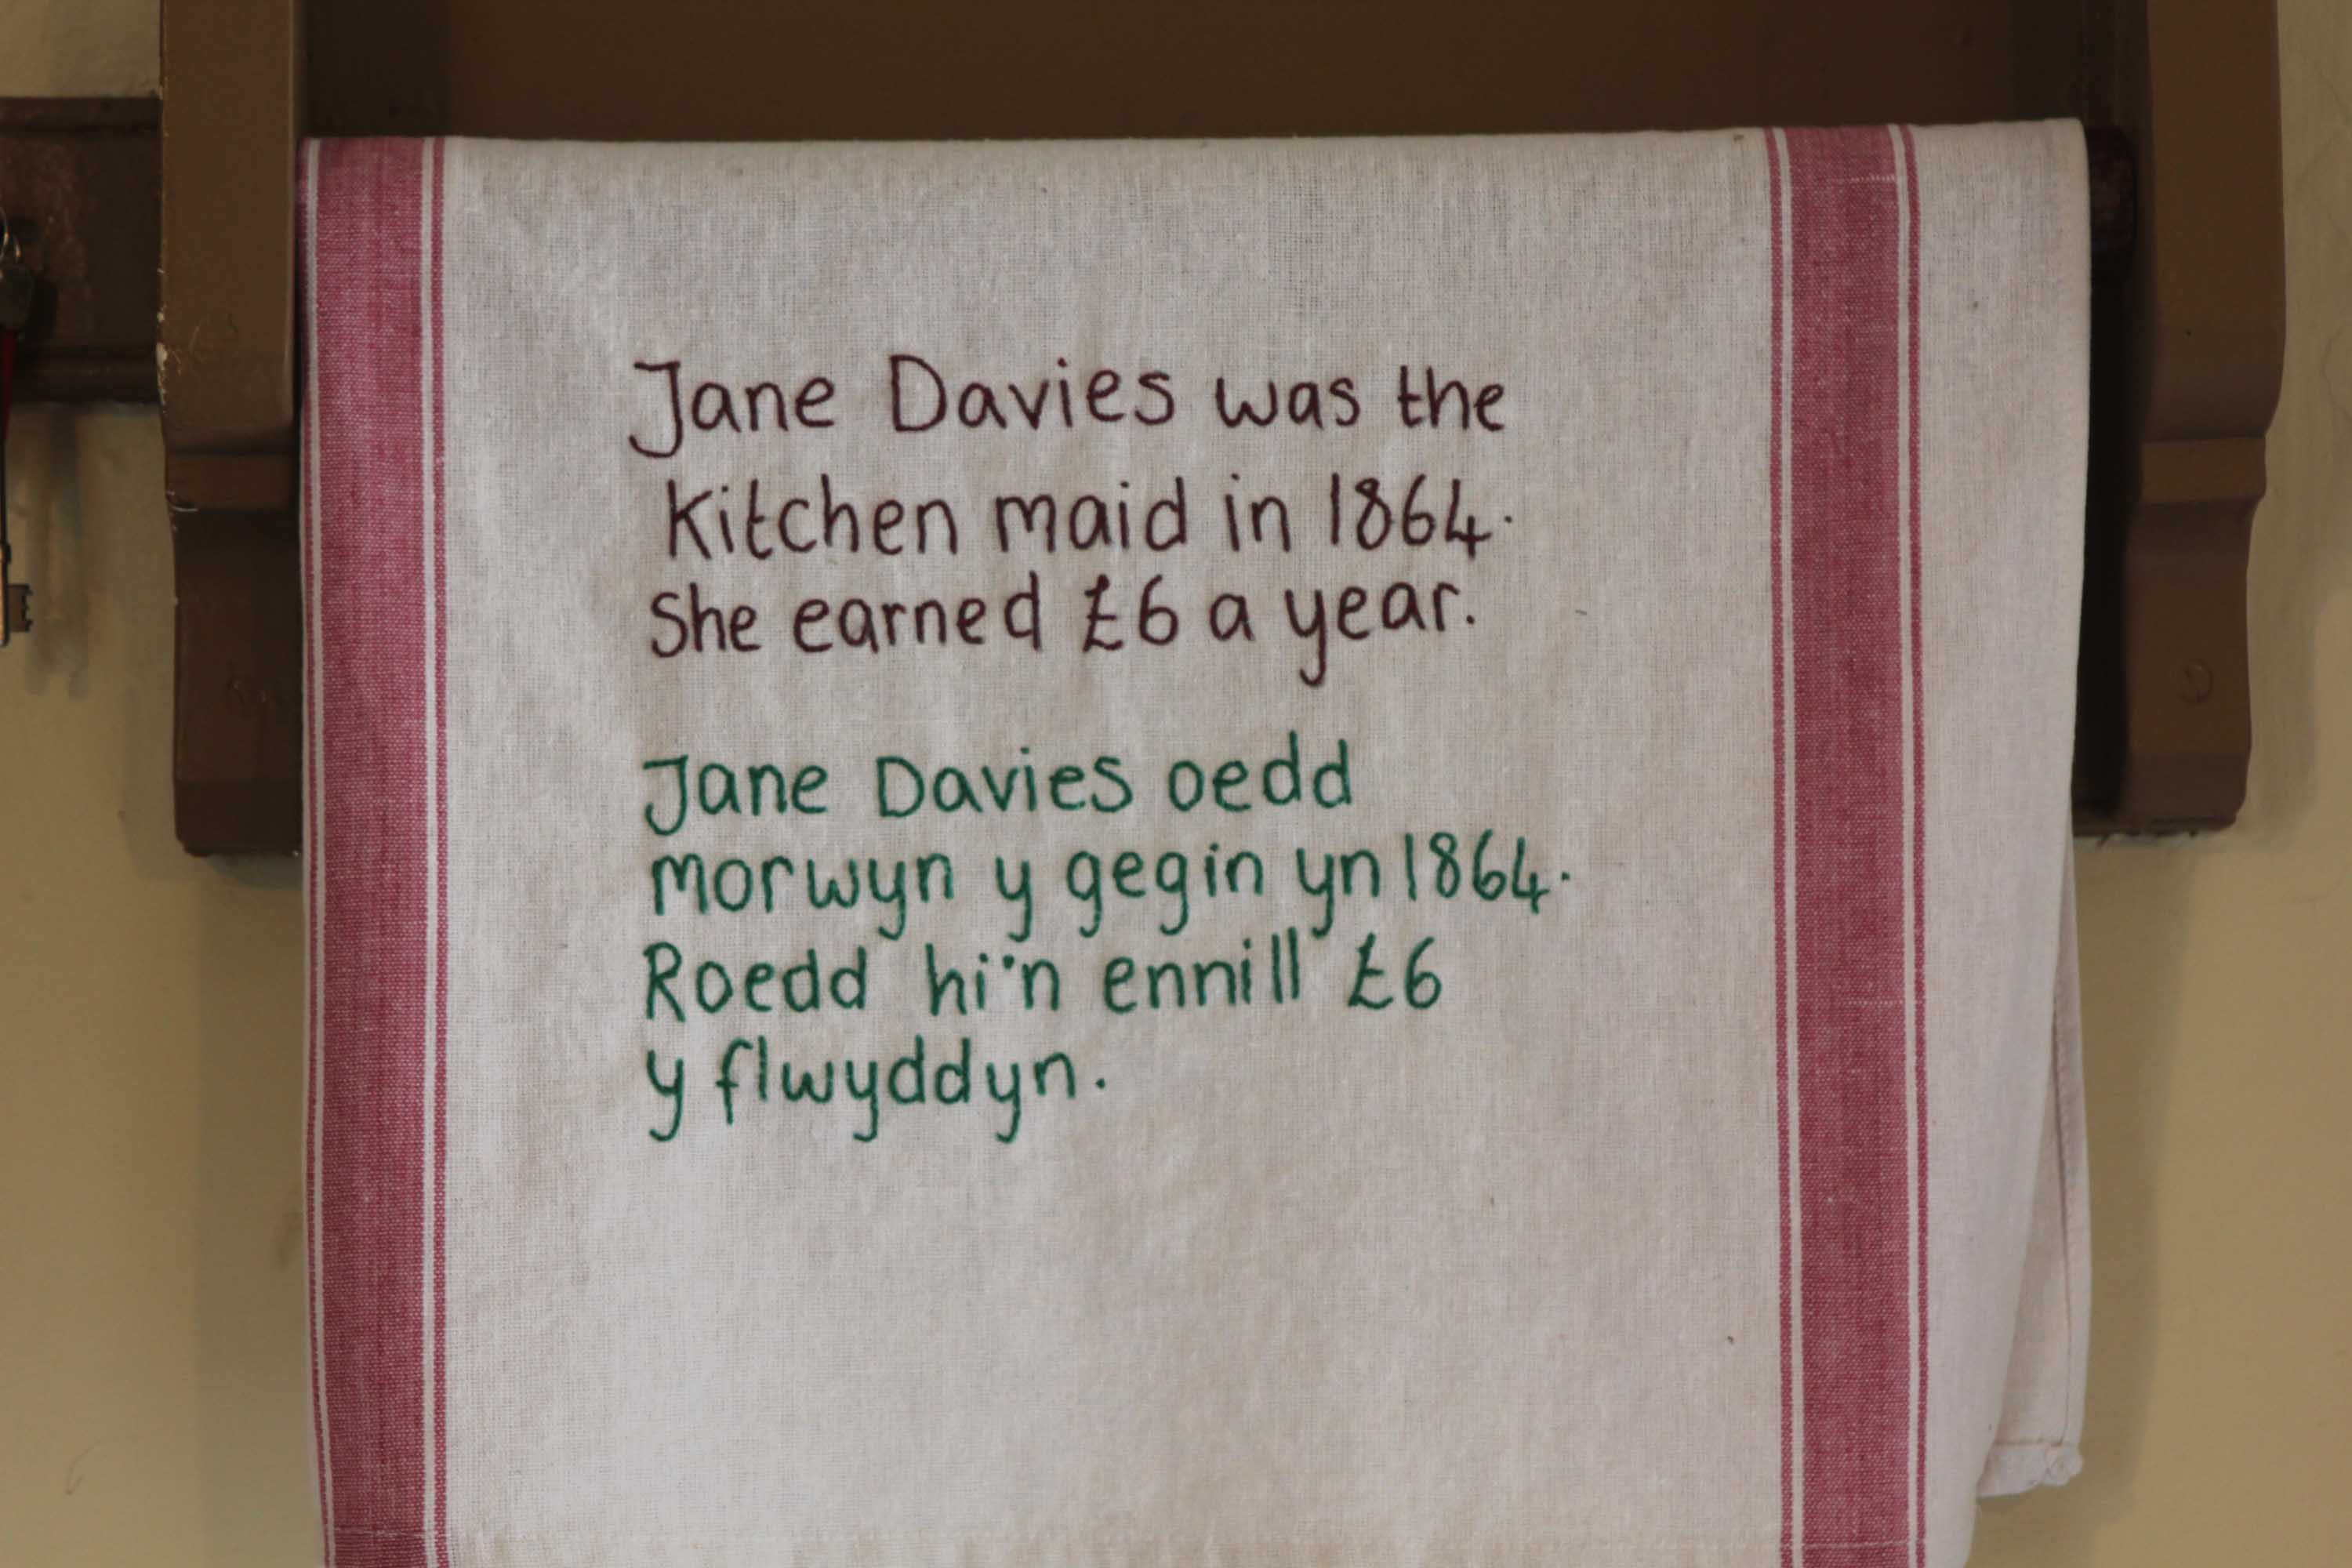 Jane Davies was the
Kitchen maid in 1864.
She earned £6 a year.
Jane Davies oedd
morwyn y gegin yn 1864.
Roedd hi'n ennill £6
y flwyddyn.